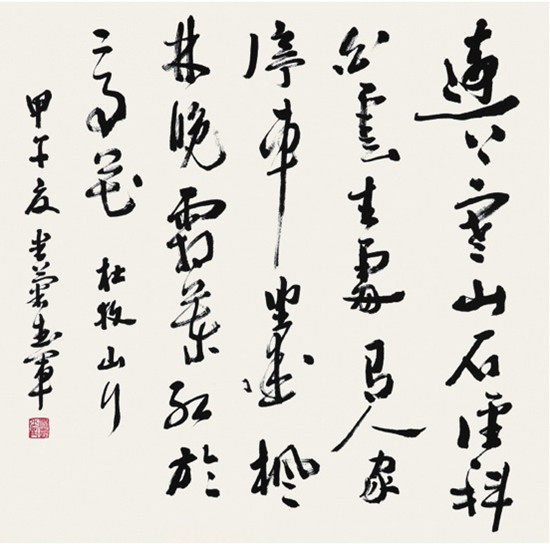 遠上寒山石徑斜
白雲生處有人家
停車坐愛楓
林晚霜葉紅於
二月花 杜牧山行
甲午夏